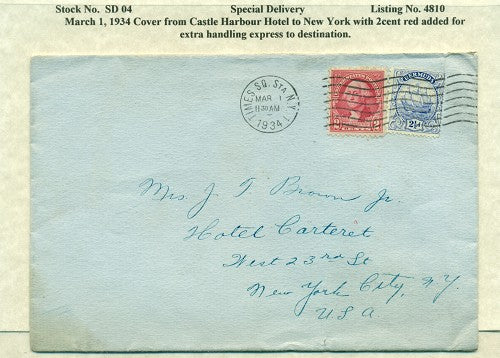 Stock No. SD 04 Special Delivery Listing No. 4810
March 1, 1934 Cover from Castle Harbour Hotel to New York with 2cent red added for
extra handling express to destination.
TIMES SQ. STA. N.Y.
MAR 1
11:30 AM
1934
BERMUDA
2½d
Mrs. J. T. Brown Jr.
Hotel Carteret
West 23rd St
New York City, N.Y.
U.S.A